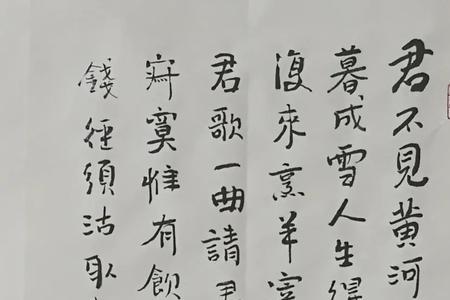 君不見黄河
暮成雪人生得
復來烹羊宰
君歌一曲請君
寂寞惟有飲
錢徑須沽取